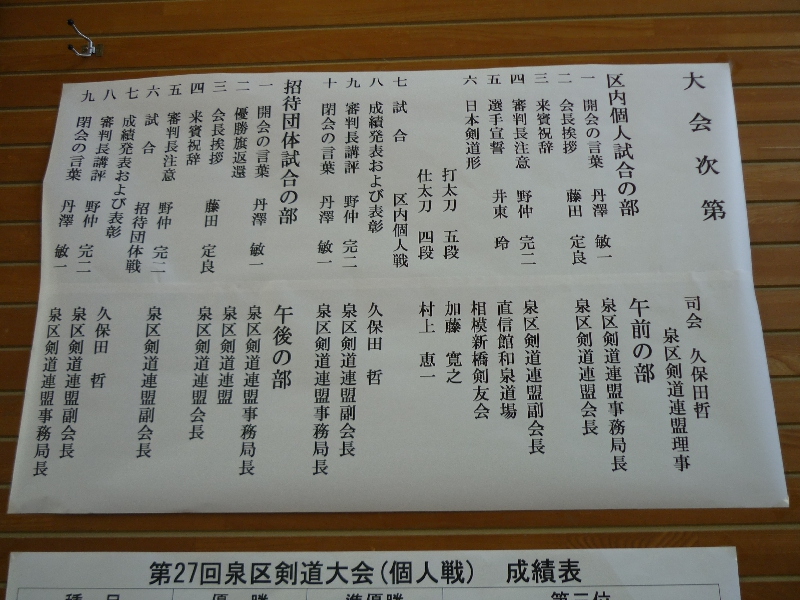 大会次第
司会 久保田哲
泉区剣道連盟理事
区内個人試合の部 午前の部
一 開会の言葉 丹澤 敏一 泉区剣道連盟事務局長
二 会長挨拶 藤田 定良 泉区剣道連盟会長
三 来賓祝辞
四 審判長注意 野仲 完二 泉区剣道連盟副会長
五 選手宣誓 井東 玲 直信館和泉道場
六 日本剣道形 相模新橋剣友会
打太刀 五段 加藤 寛之
仕太刀 四段 村上 恵一
七 試合 区内個人戦
八 成績発表および表彰 久保田 哲
九 審判長講評 野仲 完二 泉区剣道連盟副会長
十 閉会の言葉 丹澤 敏一 泉区剣道連盟事務局長
招待団体試合の部 午後の部
一 開会の言葉 丹澤 敏一 泉区剣道連盟事務局長
二 優勝旗返還 泉区剣道連盟
三 会長挨拶 藤田 定良 泉区剣道連盟会長
四 来賓祝辞
五 審判長注意 野仲 完二 泉区剣道連盟副会長
六 試合 招待団体戦
七 成績発表および表彰 久保田 哲
八 審判長講評 野仲 完二 泉区剣道連盟副会長
九 閉会の言葉 丹澤 敏一 泉区剣道連盟事務局長
第27回泉区剣道大会(個人戦) 成績表
種目 優勝 準優勝 第三位